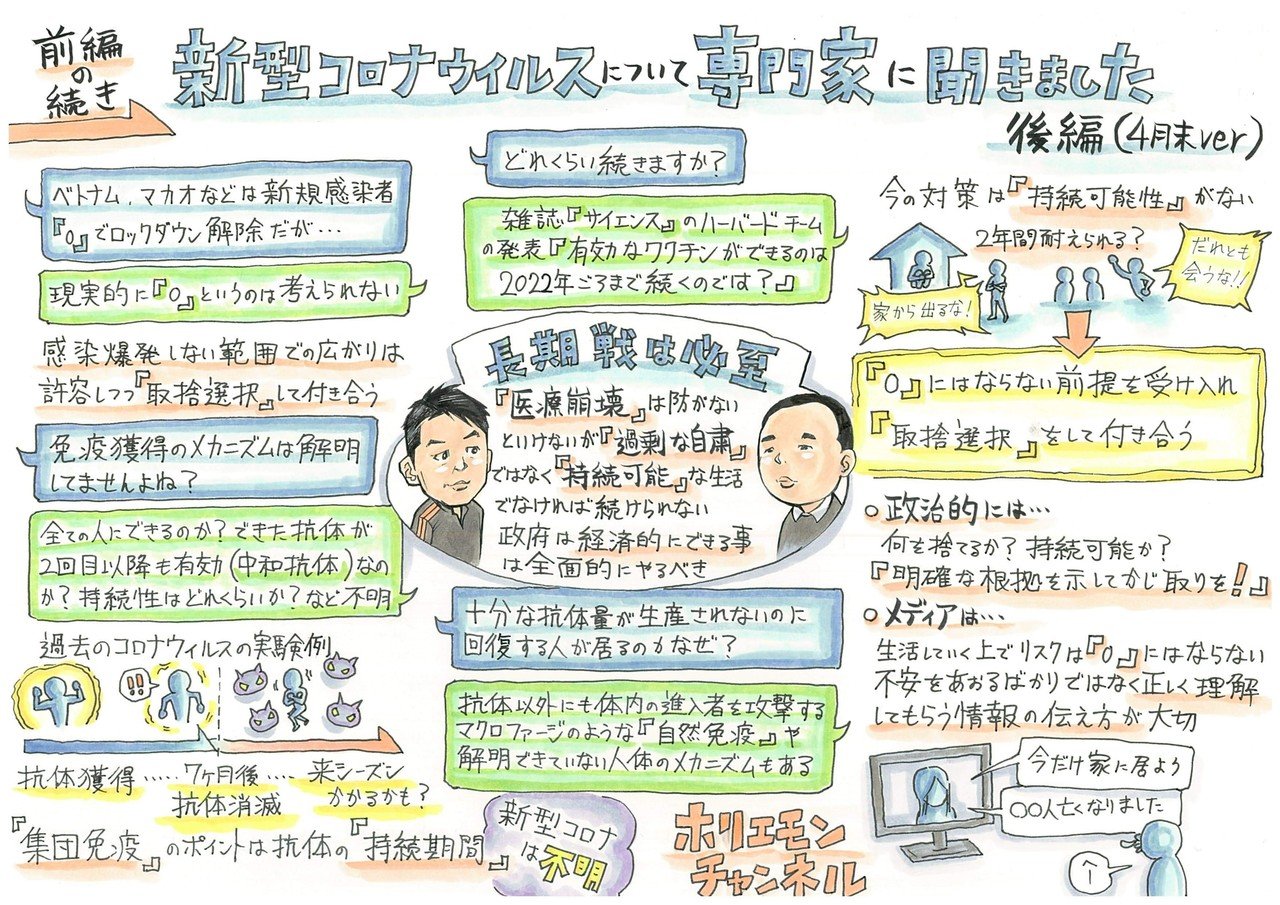 前編
の
続き
新型コロナウイルスについて専門家に聞きました
後編(4月末ver)
ベトナム、マカオなどは新規感染者
『0』でロックダウン解除だが…
現実的に『0』というのは考えられない
感染爆発しない範囲での広がりは
許容しつつ『取捨選択』して付き合う
免疫獲得のメカニズムは解明
してませんよね?
全ての人にできるのか?できた抗体が
2回目以降も有効(中和抗体)なの
か?持続性はどれくらいか?など不明
過去のコロナウィルスの実験例
!!
抗体獲得……7ヶ月後…. 来シーズン
抗体消滅 かかるかも?
『集団免疫』のポイントは抗体の『持続期間』
新型コロナ
は不明
どれくらい続きますか?
雑誌『サイエンス』のハーバードチーム
の発表『有効なワクチンができるのは
2022年ごろまで続くのでは?』
長期戦は必至
『医療崩壊』は防がない
といけないが『過剰な自粛』
ではなく『持続可能』な生活
でなければ続けられない
政府は経済的にできる事
は全面的にやるべき
十分な抗体量が生産されないのに
回復する人が居るのかなぜ?
抗体以外にも体内の進入者を攻撃する
マクロファージのような『自然免疫』や
解明できていない人体のメカニズムもある
ホリエモン
チャンネル
今の対策は『持続可能性』がない
2年間耐えられる?
家から出るな!
だれとも
会うな!!
『0』にはならない前提を受け入れ
『取捨選択』をして付き合う
○政治的には…
何を捨てるか?持続可能か?
『明確な根拠を示してかじ取りを!』
○メディアは…
生活していく上でリスクは『0』にはならない
不安をあおるばかりではなく正しく理解
してもらう情報の伝え方が大切
今だけ家に居よう
○○人亡くなりました
↑